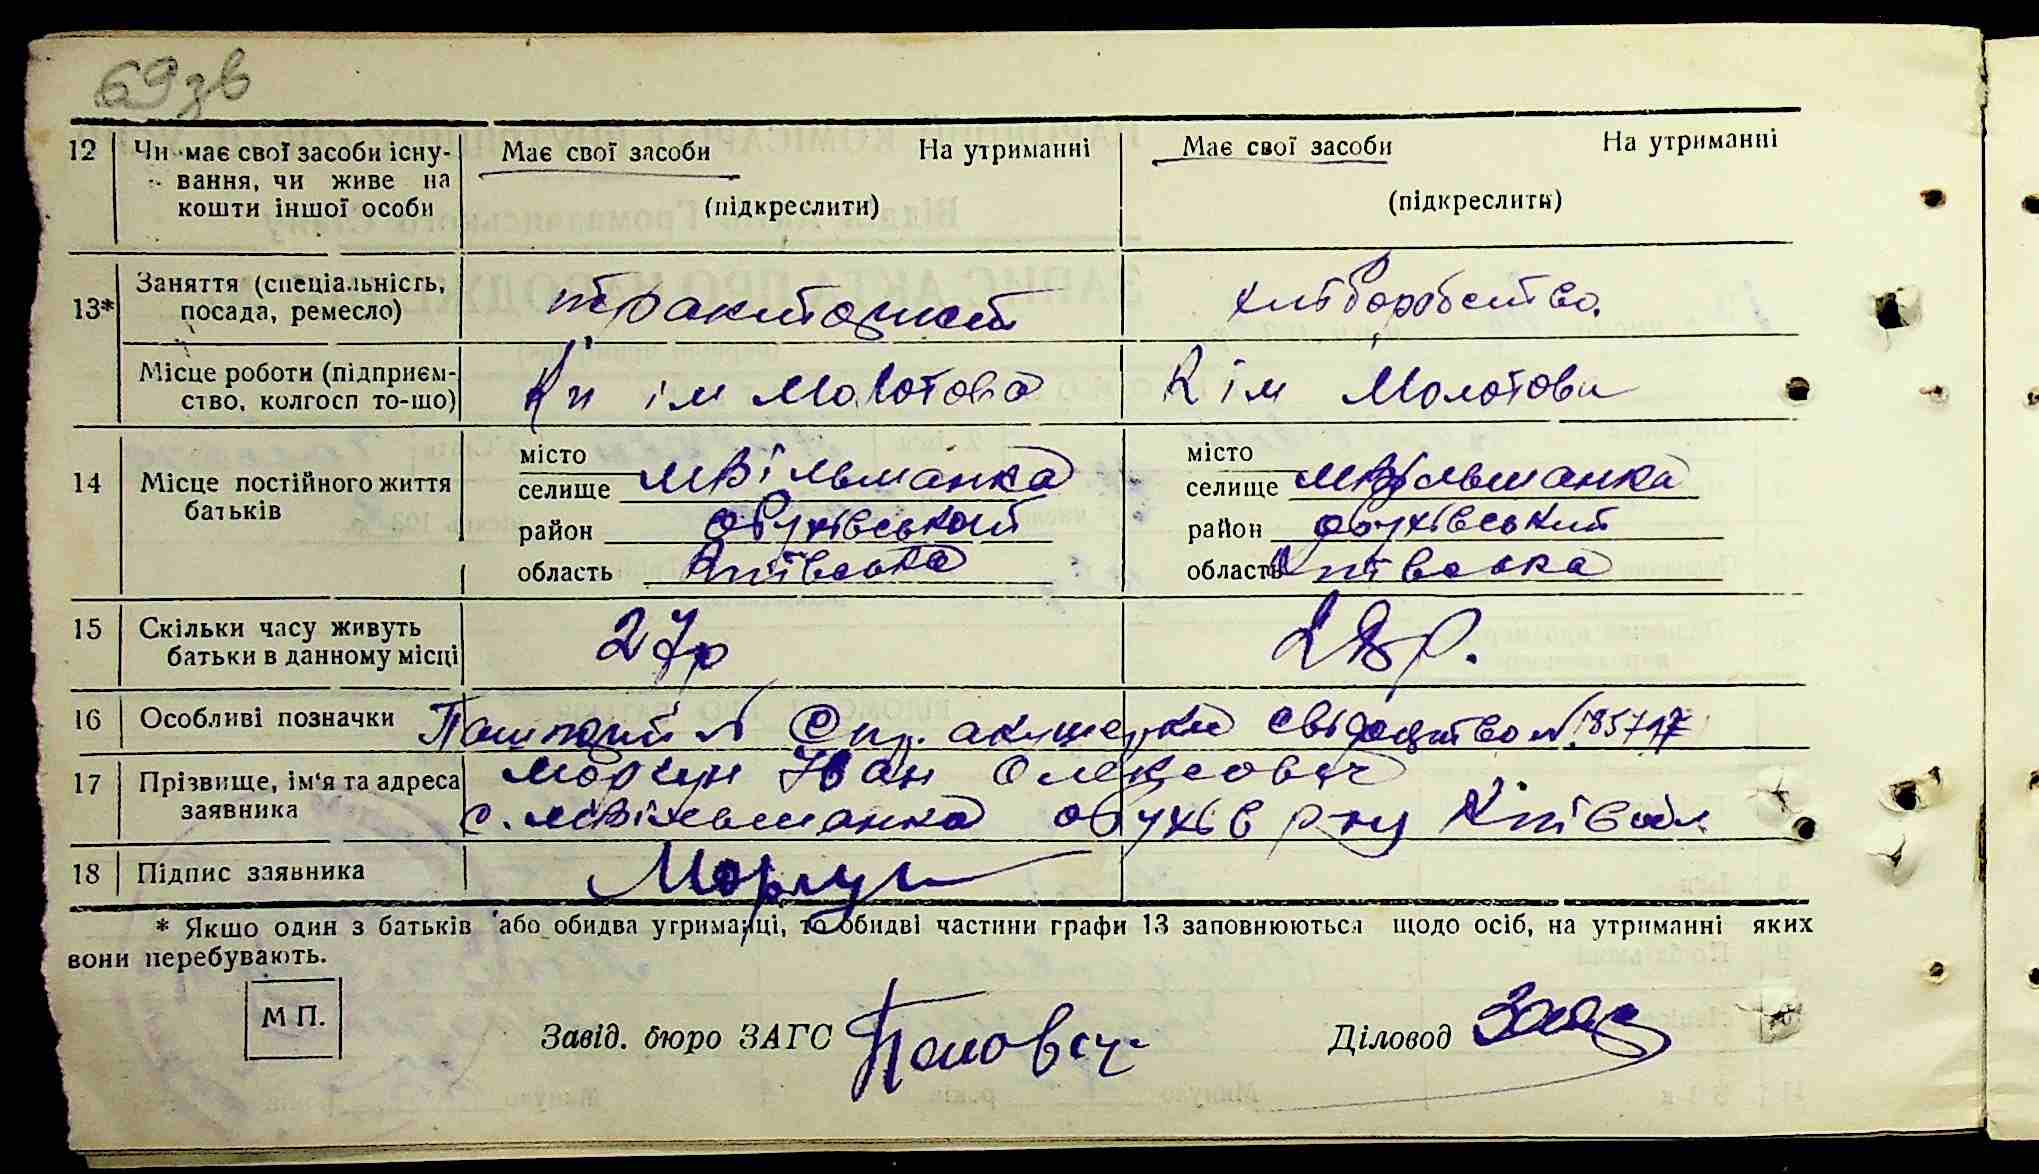 69зв
12 Чи має свої засоби існу- Має свої засоби На утриманні Має свої засоби На утриманні
вання, чи живе на
кошти іншої особи (підкреслити) (підкреслити)
13* Заняття (спеціальність, тракторист хліборобство.
посада, ремесло)
Місце роботи (підприєм- ім Молотова К ім Молотова
ство, колгосп то-що)
місто місто
14 Місце постійного життя селище МВільшанка селище МВільшанка
батьків район обухівський район обухівський
область Київська область Київська
15 Скільки часу живуть 27р 28р.
батьки в данному місці
16 Особливі позначки Пашпорт № Спр. акушерки свідоцтво № 185717
17 Прізвище, ім'я та адреса Моргун Іван Олексович
заявника с. мВільшанка обухів р-ну Київ обл.
18 Підпис заявника Моргун
* Якшо один з батьків або обидва утриманці, то обидві частини графи 13 заповнюються щодо осіб, на утриманні яких
вони перебувають.
М П. Завід. бюро ЗАГС Діловод